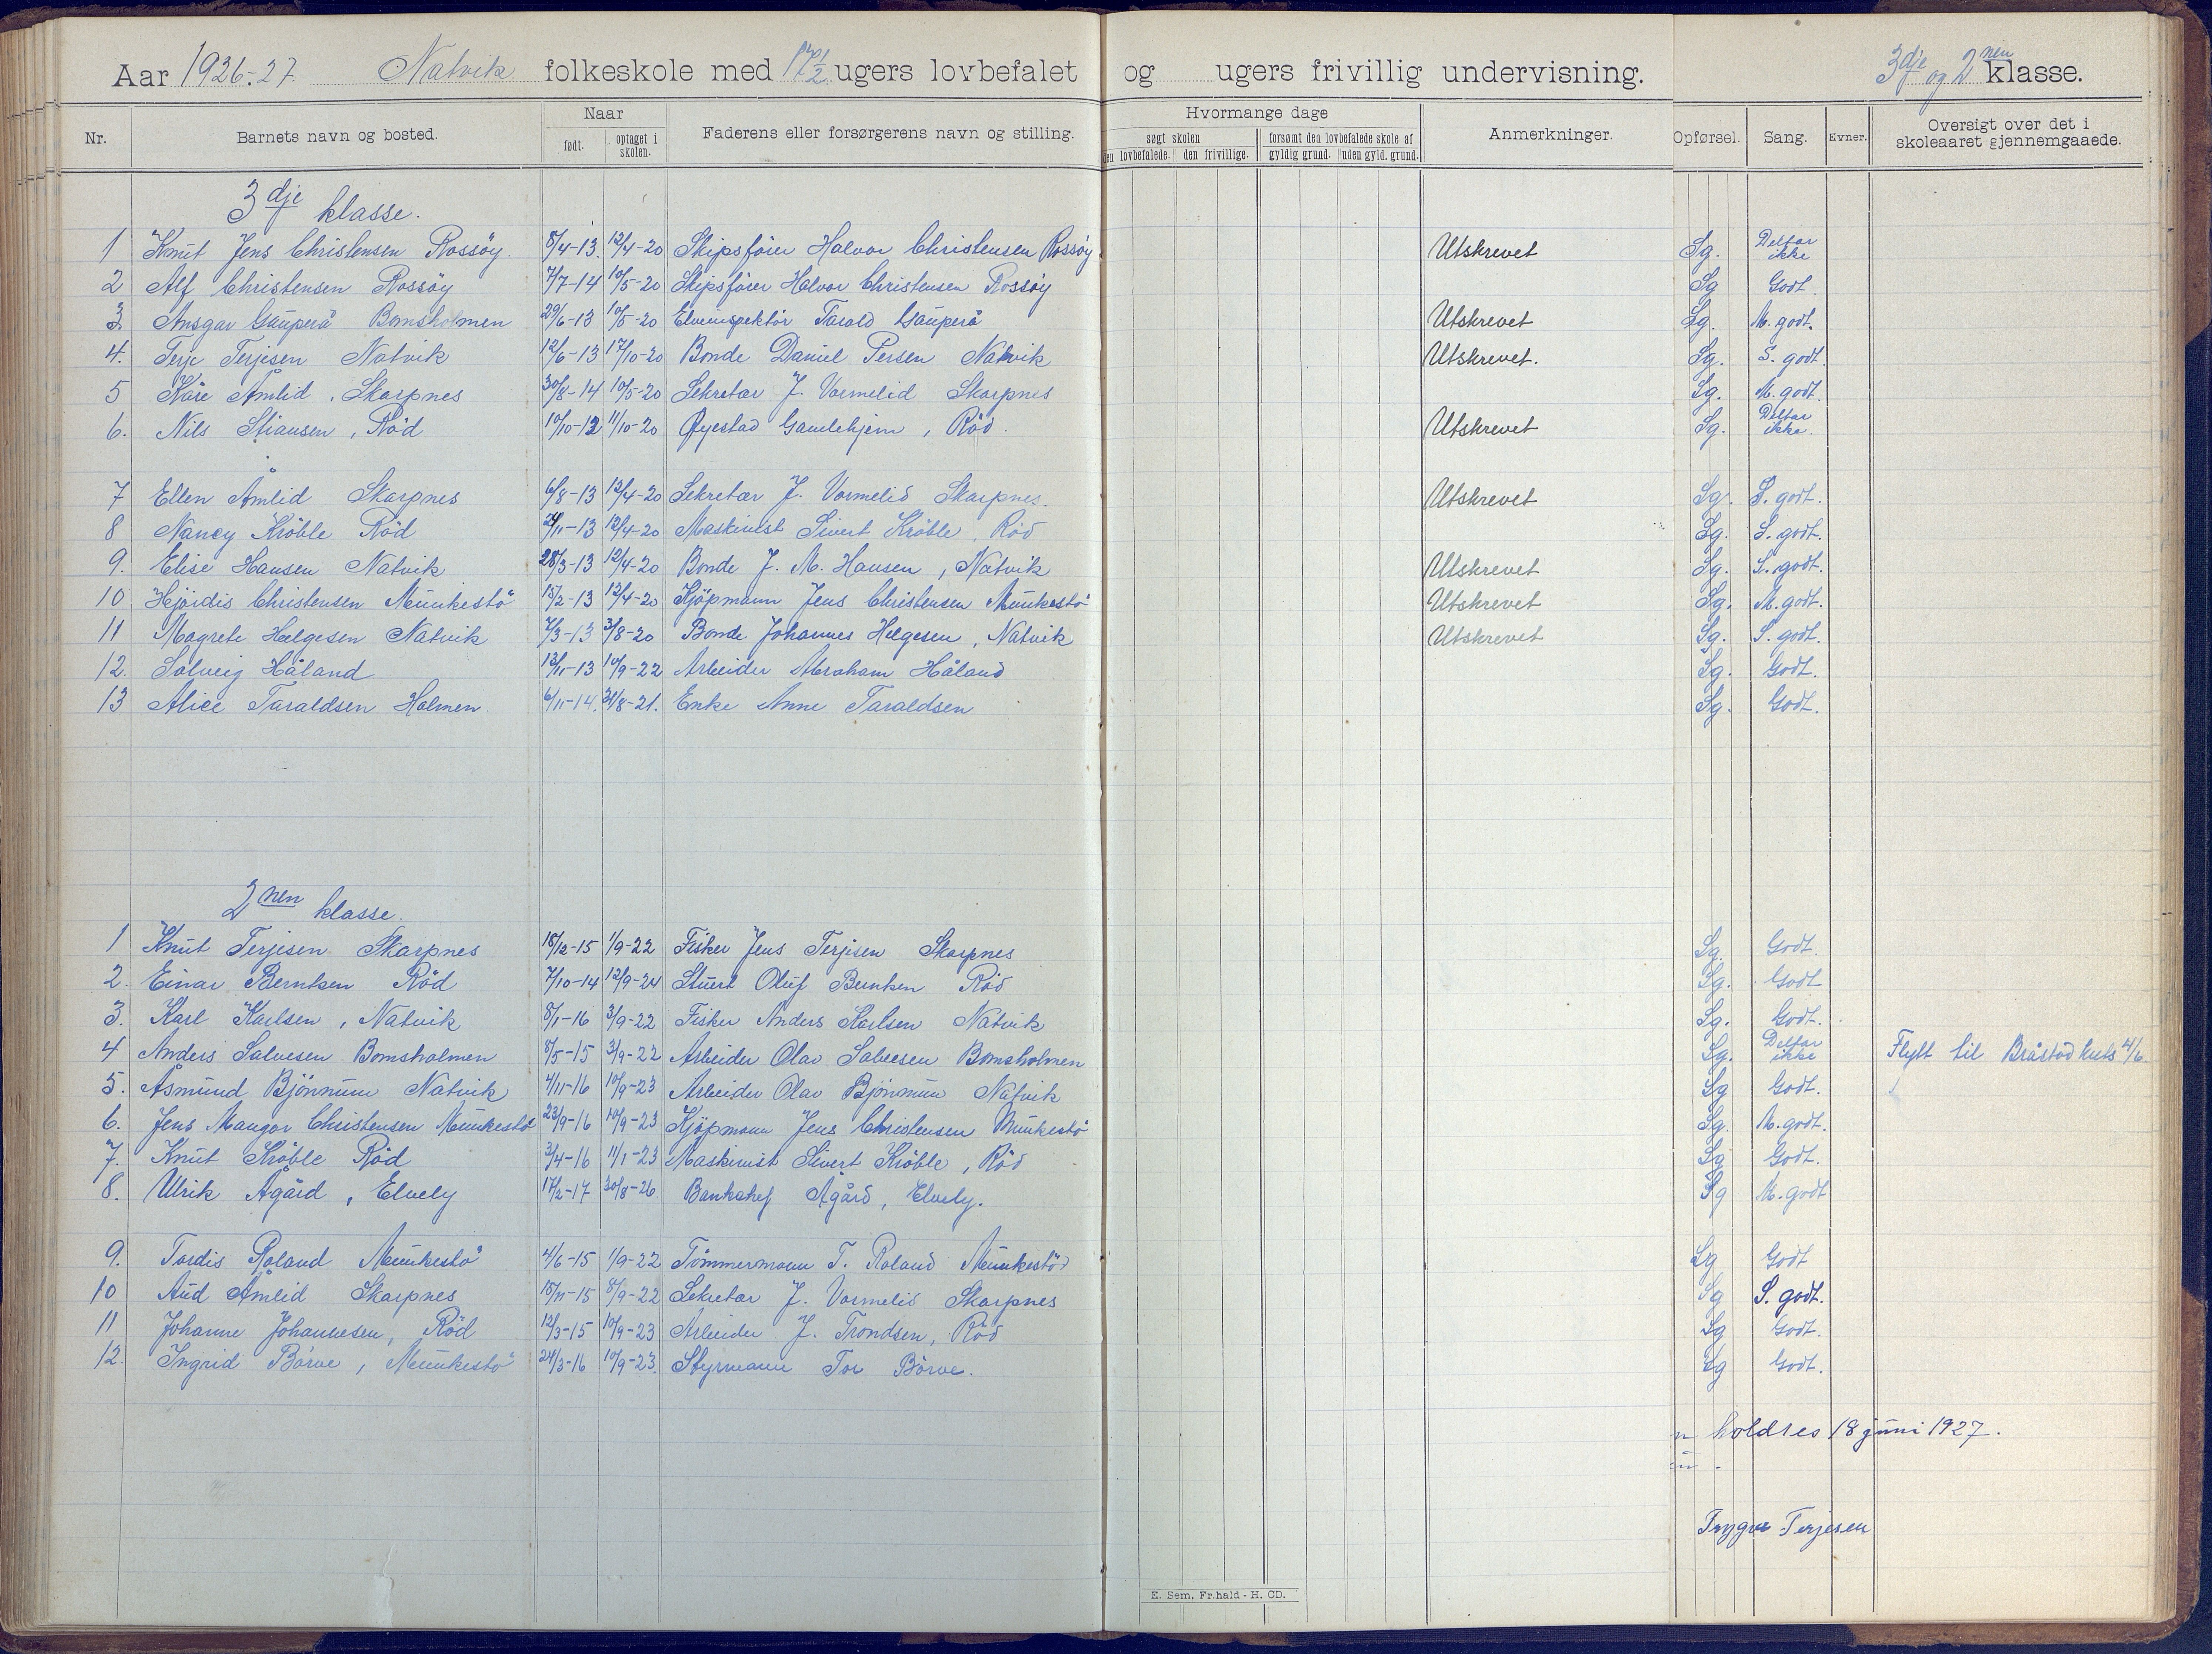 Aar 1926-27. Natvik folkeskole med 17 1/2 ugers lovbefalet og ugers frivillig undervisning. 3dje og 2nen klasse.
Nr. Barnets navn og bosted. Naar født. optaget i skolen. Faderens eller forsørgerens navn og stilling. Hvormange dage søgt skolen den lovbefalede. den frivillige. forsømt den lovbefalede skole af gyldig grund. uden gyld. grund. Anmerkninger. Opførsel. Sang. Evner. Oversigt over det i skoleaaret gjennemgaaede.
3dje klasse.
1 Knut Jens Christensen Rossöy. 8/4-13. 12/4-20 Skipsförer Halvor Christensen Rossöy Utskrevet Sg. Deltar ikke
2 Alf Christensen Rossöy 7/7-14 10/5-20 Skipsförer Halvor Christensen Rossöy Sg Godt
3. Ansgar Gauperå Bomsholmen 29/6-13 10/5-20 Elveinspektör Tarald Gauperå Utskrevet Sg. M. godt.
4. Terje Terjesen Natvik 12/6-13 17/10-20 Bonde Daniel Persen Natvik Utskrevet. Sg. S. godt.
5 Kåre Åmlid, Skarpnes 30/8-14 10/5-20 Sekretær J. Vormelid Skarpnes Sg. M. godt.
6. Nils Stiansen, Röd 10/10-12 11/10-20 Øyestad Gamlehjem, Röd. Utskrevet Sg. Deltar ikke.
7 Ellen Åmlid Skarpnes 6/8-13 12/4-20 Sekretær J. Vormelid Skarpnes. Utskrevet Sg. S. godt.
8 Nancy Kröble Röd 24/11-13 12/4-20 Maskinist Sivert Kröble, Röd Sg. S. godt.
9. Elise Hansen Natvik 28/3-13 12/4-20 Bonde J. M. Hansen, Natvik Utskrevet Sg. S. godt.
10 Hjördis Christensen Munkestö 15/2-13 12/4-20 Kjöpmann Jens Christensen Munkestö Utskrevet Sg. M. godt.
11 Magrete Helgesen Natvik 7/3-13 3/8-20 Bonde Johannes Helgesen, Natvik Utskrevet Sg. S. godt.
12. Solveig Håland 13/11-13 10/9-22 Arbeider Abraham Håland Sg. Godt.
13 Alice Taraldsen Holmen. 6/11-14. 31/8-21. Enke Anne Taraldsen Sg. Godt.
2nen klasse.
1 Knut Terjesen Skarpnes 18/12-15 1/9-22 Fisker Jens Terjesen Skarpnes Sg. Godt.
2. Einar Berntsen Röd 7/10-14 12/9-24 Stuert Oluf Berntsen Röd Sg. Godt
3. Karl Karlsen, Natvik 8/1-16 3/9-22 Fisker Anders Karlsen Natvik Sg. Godt.
4 Anders Salvesen Bomsholmen 8/5-15 3/9-22 Arbeider Olav Salvesen Bomsholmen Sg. Deltar ikke Flytt til Bråstad kets 4/6
5. Åsmund Bjönnum Natvik 4/11-16 10/9-23 Arbeider Olav Bjönnum Natvik Sg Godt.
6. Jens Mangor Christensen Munkestö 23/9-16 10/9-23 Kjöpmann Jens Christensen Munkestö Sg. M. godt.
7. Knut Kröble Röd 3/4-16 11/1-23 Maskinist Sivert Kröble, Röd Sg Godt.
8. Ulrik Ågård, Elvely 17/2-17 30/8-26 Banksjef Ågård, Elvely. Sg M. godt
9. Tordis Roland Munkestö 4/6-15 1/9-22 Tömmermann T. Roland Munkestöd Sg Godt
10 Aud Åmlid Skarpnes 15/11-15 8/9-22 Sekretær J. Vormelid Skarpnes Sg S. godt.
11 Johanne Johannesen, Röd 12/3-15 10/9-23 Arbeider J. Trondsen, Röd Sg Godt.
12. Ingrid Börve, Munkestö 24/3-16 10/9-23. Styrmann Tor Börve. Sg Godt.
holdtes 18 juni 1927.
Trygve Terjesen
E. Sem, Fr.hald - H. CD.